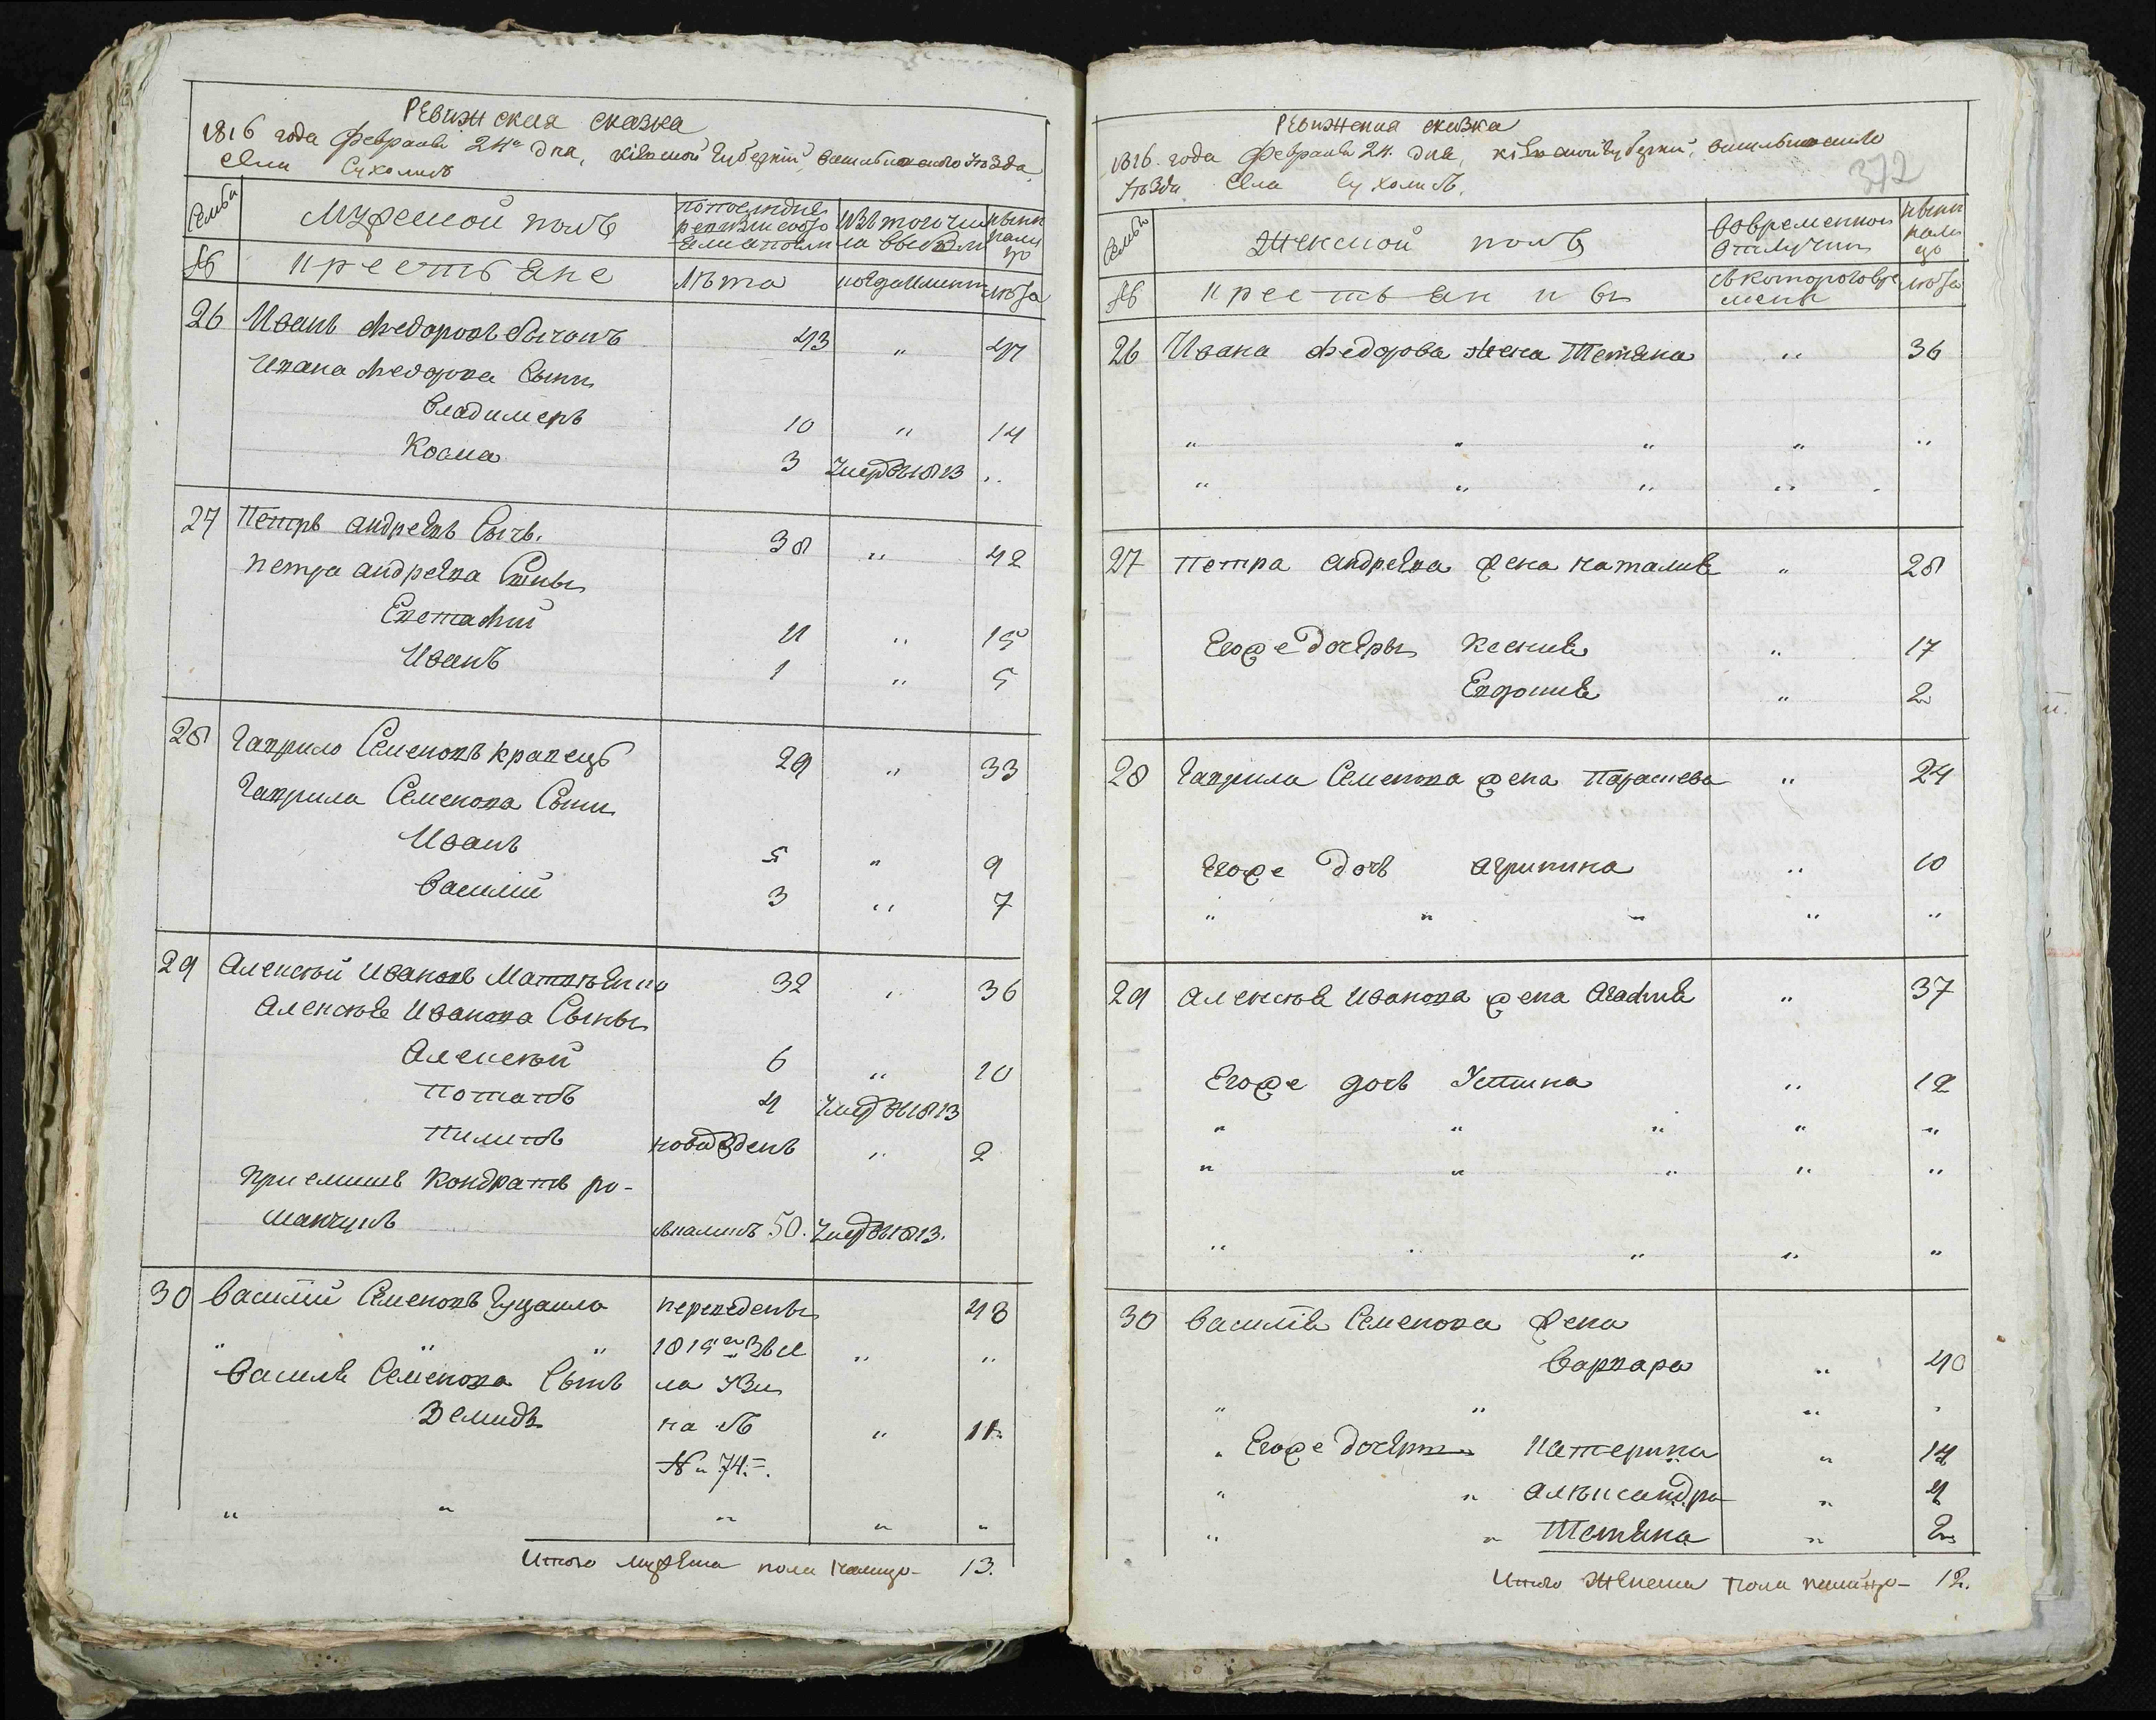 Ревижская сказка
1816 года Февраля 24го дня, Кіевской Губерніи, Васильковского уѣзда,
села Сухолѣсъ
Семьи Мужеской полъ По последней ревизіи состояло Изъ того числа выбыло Ныне налицо
№ Крестьяне Лѣта когда именно лѣта
26 Иванъ Федоровъ 43 " 47
Ивана Федорова Сыны
Владимеръ 10 " 14
Косма 3 Умеръ въ 1813 "
27 Петръ андреевъ Сычъ. 38 " 42
Петра андреева Сыны
Евстафий 11 " 15
Иванъ 1 " 5
28 Гаврило Семеновъ кравецъ 29 " 33
Гаврила Семенова Сыны
Иванъ 5 " 9
Василий 3 " 7
29 Алексѣй Ивановъ 32 " 36
Алексѣя Иванова Сыны
Алексѣй 6 " 10
Потапъ 4 Умеръ въ 1813
Пилипъ новорожденъ " 2
приемышъ Кондратъ ро-
манчукъ 50. Умеръ въ 1813.
30 Василий Семеновъ переведены 48
" " " "
Василя Семенова Сынъ
Демидъ на № " 11
№ 74.
" " " " "
Итого мужеска пола налицо - 13.
Ревижския сказка
1816. года Февраля 24. дня, Кіевской губерніи, Васильковского
уѣзда села Сухолѣсъ.
372
Семьи Женской полъ Во временной отлучки Ныне налицо
№ Крестьянки Съ которого времени лѣта
26 Ивана Федорова жена Тетяна " 36
" " " " "
" " " " "
27 Петра андреева жена наталия " 28
Егоже дочеры Ксения " 17
Евдокия " 2
28 Гаврила Семенова жена Параскева " 24
Егоже дочь Агрипина " 10
" " " " "
29 Алексѣя Иванова жена Агафия " 37
Егоже дочь Устина " 12
" " " " "
" " " " "
" " " " "
30 Василія Семенова жена
Варвара " 40
" " " "
" Егоже дочеры Катерина " 14
" " Александра " 4
" " Тетяна " 2
Итого женска пола налицо - 12.